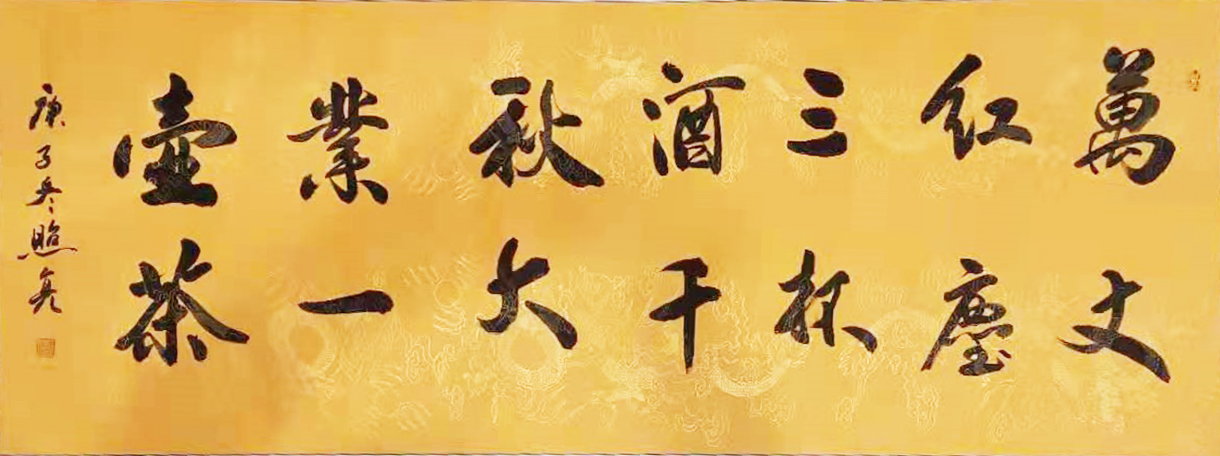 萬丈
红塵
三杯
酒千
秋大
業一
壺茶
庚子冬照亮